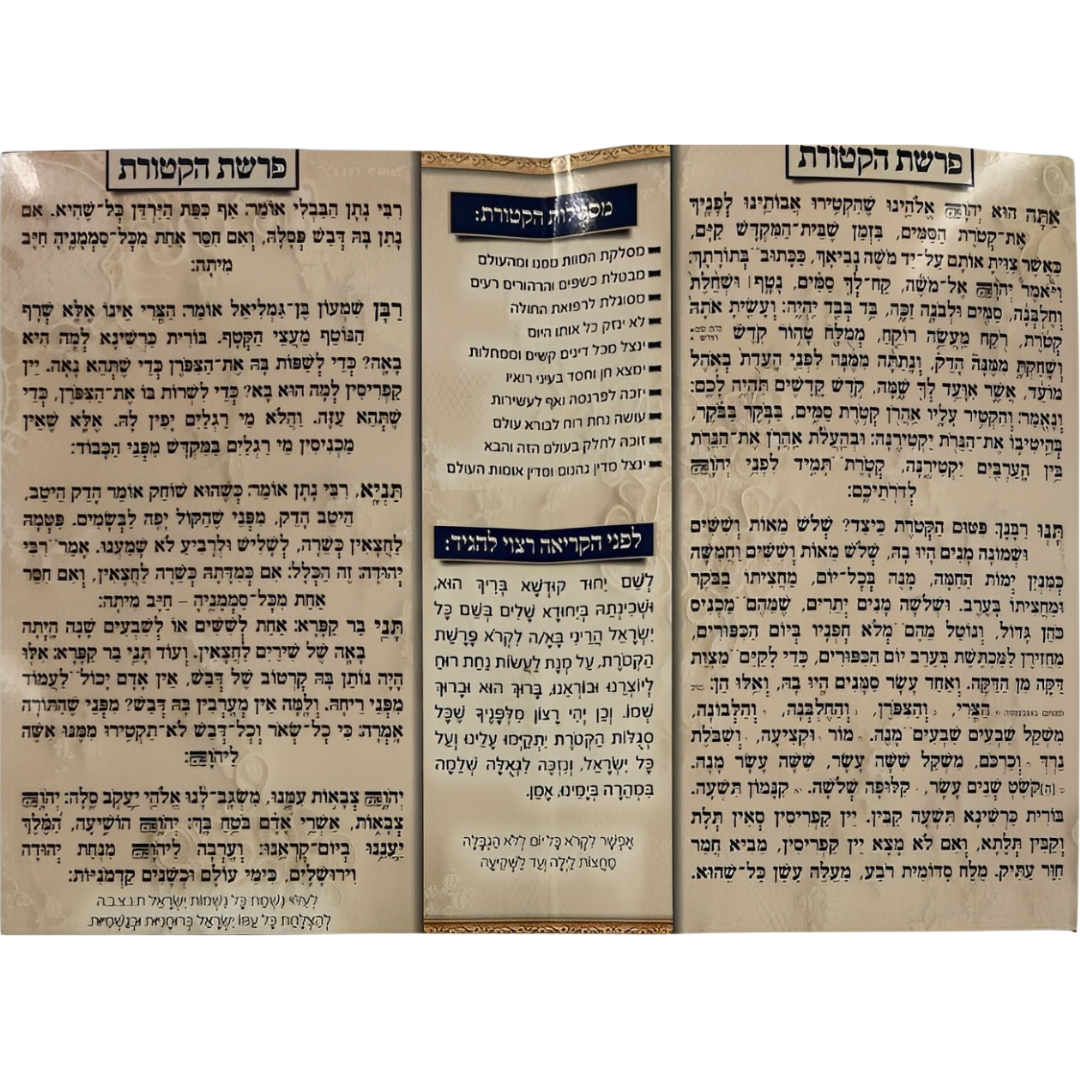 פרשת הקטורת
אַתָּה הוּא יְהֹוָה אֱלֹהֵינוּ שֶׁהִקְטִירוּ אֲבוֹתֵינוּ לְפָנֶיךָ
אֶת־קְטֹרֶת הַסַּמִּים, בִּזְמַן שֶׁבֵּית־הַמִּקְדָּשׁ קַיָּם,
כַּאֲשֶׁר צִוִּיתָ אוֹתָם עַל־יַד מֹשֶׁה נְבִיאָךְ, כַּכָּתוּב בְּתוֹרָתָךְ:
וַיֹּאמֶר יְהֹוָה אֶל־מֹשֶׁה, קַח־לְךָ סַמִּים, נָטָף׀ וּשְׁחֵלֶת
וְחֶלְבְּנָה, סַמִּים וּלְבֹנָה זַכָּה, בַּד בְּבַד יִהְיֶה: וְעָשִׂיתָ אֹתָהּ
קְטֹרֶת, רֹקַח מַעֲשֵׂה רוֹקֵחַ, מְמֻלָּח טָהוֹר קֹדֶשׁ
וְשָׁחַקְתָּ מִמֶּנָּה הָדֵק, וְנָתַתָּה מִמֶּנָּה לִפְנֵי הָעֵדֻת בְּאֹהֶל
מוֹעֵד, אֲשֶׁר אִוָּעֵד לְךָ שָׁמָּה, קֹדֶשׁ קָדָשִׁים תִּהְיֶה לָכֶם:
וְנֶאֱמַר: וְהִקְטִיר עָלָיו אַהֲרֹן קְטֹרֶת סַמִּים, בַּבֹּקֶר בַּבֹּקֶר,
בְּהֵיטִיבוֹ אֶת־הַנֵּרֹת יַקְטִירֶנָּה: וּבְהַעֲלֹת אַהֲרֹן אֶת־הַנֵּרֹת
בֵּין הָעַרְבַּיִם יַקְטִירֶנָּה, קְטֹרֶת תָּמִיד לִפְנֵי יְהֹוָה
לְדֹרֹתֵיכֶם:
תָּנוּ רַבָּנָן: פִּטּוּם הַקְּטֹרֶת כֵּיצַד? שְׁלֹשׁ מֵאוֹת וְשִׁשִּׁים
וּשְׁמוֹנָה מָנִים הָיוּ בָהּ, שְׁלֹשׁ מֵאוֹת וְשִׁשִּׁים וַחֲמִשָּׁה
כְּמִנְיַן יְמוֹת הַחַמָּה, מָנֶה בְּכָל־יוֹם, מַחֲצִיתוֹ בַּבֹּקֶר
וּמַחֲצִיתוֹ בָּעֶרֶב. וּשְׁלֹשָׁה מָנִים יְתֵרִים, שֶׁמֵּהֶם מַכְנִיס
כֹּהֵן גָּדוֹל, וְנוֹטֵל מֵהֶם מְלֹא חָפְנָיו בְּיוֹם הַכִּפּוּרִים,
מַחֲזִירָן לַמַּכְתֶּשֶׁת בְּעֶרֶב יוֹם הַכִּפּוּרִים, כְּדֵי לְקַיֵּם מִצְוַת
דַּקָּה מִן הַדַּקָּה. וְאַחַד עָשָׂר סַמָּנִים הָיוּ בָהּ, וְאֵלּוּ הֵן:
הַצֳּרִי, וְהַצִּפֹּרֶן, וְהַחֶלְבְּנָה, וְהַלְּבוֹנָה,
מִשְׁקַל שִׁבְעִים שִׁבְעִים מָנֶה. מוֹר וּקְצִיעָה, וְשִׁבֹּלֶת
נֵרְדְּ וְכַרְכֹּם, מִשְׁקַל שִׁשָּׁה עָשָׂר, שִׁשָּׁה עָשָׂר מָנֶה.
(ה)קֹשְׁטְ שְׁנֵים עָשָׂר, קִלּוּפָה שְׁלֹשָׁה. קִנָּמוֹן תִּשְׁעָה.
בּוֹרִית כַּרְשִׁינָא תִּשְׁעָה קַבִּין. יֵין קַפְרִיסִין סְאִין תְּלָת
וְקַבִּין תְּלָתָא, וְאִם לֹא מָצָא יֵין קַפְרִיסִין, מֵבִיא חֲמַר
חִוַּר עַתִּיק. מֶלַח סְדוֹמִית רֹבַע, מַעֲלֶה עָשָׁן כָּל־שֶׁהוּא.
מסגולות הקטורת:
מסלקת המוות ממנו ומהעולם
מבטלת כשפים והרהורים רעים
מסוגלת לרפואת החולה
לא ינזק כל אותו היום
ינצל מכל דינים קשים וממחלות
ימצא חן וחסד בעיני רואיו
יזכה לפרנסה ואף לעשירות
עושה נחת רוח לבורא עולם
זוכה לחלק בעולם הזה והבא
ינצל מדין גהנום ומדין אומות העולם
לפני הקריאה רצוי להגיד:
לְשֵׁם יִחוּד קוּדְשָׁא בְּרִיךְ הוּא,
וּשְׁכִינְתֵּהּ בְּיִחוּדָא שְׁלִים בְּשֵׁם כָּל
יִשְׂרָאֵל הֲרֵינִי בָּא/ה לִקְרֹא פָּרָשַׁת
הַקְּטֹרֶת, עַל מְנָת לַעֲשׂוֹת נַחַת רוּחַ
לְיוֹצְרֵנוּ וּבוֹרְאֵנוּ, בָּרוּךְ הוּא וּבָרוּךְ
שְׁמוֹ. וְכֵן יְהִי רָצוֹן מִלְּפָנֶיךָ שֶׁכָּל
סְגֻלּוֹת הַקְּטֹרֶת יִתְקַיְּמוּ עָלֵינוּ וְעַל
כָּל יִשְׂרָאֵל, וְנִזְכֶּה לִגְאֻלָּה שְׁלֵמָה
בִּמְהֵרָה בְּיָמֵינוּ, אָמֵן.
אֶפְשָׁר לִקְרֹא כָּל יוֹם לְלֹא הַגְבָּלָה
מֵחֲצוֹת לַיְלָה וְעַד לַשְּׁקִיעָה
פרשת הקטורת
רִבִּי נָתָן הַבַּבְלִי אוֹמֵר: אַף כִּפַּת הַיַּרְדֵּן כָּל־שֶׁהִיא. אִם
נָתַן בָּהּ דְּבַשׁ פְּסָלָהּ, וְאִם חִסַּר אַחַת מִכָּל־סַמְמָנֶיהָ חַיָּב
מִיתָה:
רַבָּן שִׁמְעוֹן בֶּן־גַּמְלִיאֵל אוֹמֵר: הַצֳּרִי אֵינוֹ אֶלָּא שְׂרָף
הַנּוֹטֵף מֵעֲצֵי הַקְּטָף. בּוֹרִית כַּרְשִׁינָא לְמָה הִיא
בָאָה? כְּדֵי לְשַׁפּוֹת בָּהּ אֶת־הַצִּפֹּרֶן כְּדֵי שֶׁתְּהֵא נָאָה. יֵין
קַפְרִיסִין לְמָה הוּא בָא? כְּדֵי לִשְׁרוֹת בּוֹ אֶת־הַצִּפֹּרֶן, כְּדֵי
שֶׁתְּהֵא עַזָּה. וַהֲלֹא מֵי רַגְלַיִם יָפִין לָהּ. אֶלָּא שֶׁאֵין
מַכְנִיסִין מֵי רַגְלַיִם בַּמִּקְדָּשׁ מִפְּנֵי הַכָּבוֹד:
תַּנְיָא, רִבִּי נָתָן אוֹמֵר: כְּשֶׁהוּא שׁוֹחֵק אוֹמֵר הָדֵק הֵיטֵב,
הֵיטֵב הָדֵק, מִפְּנֵי שֶׁהַקּוֹל יָפֶה לַבְּשָׂמִים. פִּטְּמָהּ
לַחֲצָאִין כְּשֵׁרָה, לְשָׁלִישׁ וּלְרָבִיעַ לֹא שָׁמַעְנוּ. אָמַר רִבִּי
יְהוּדָה: זֶה הַכְּלָל: אִם כְּמִדָּתָהּ כְּשֵׁרָה לַחֲצָאִין, וְאִם חִסַּר
אַחַת מִכָּל־סַמְמָנֶיהָ – חַיָּב מִיתָה:
תָּנֵי בַר קַפָּרָא: אַחַת לְשִׁשִּׁים אוֹ לְשִׁבְעִים שָׁנָה הָיְתָה
בָאָה שֶׁל שִׁירַיִם לַחֲצָאִין. וְעוֹד תָּנֵי בַר קַפָּרָא: אִלּוּ
הָיָה נוֹתֵן בָּהּ קָרְטוֹב שֶׁל דְּבַשׁ, אֵין אָדָם יָכוֹל לַעֲמוֹד
מִפְּנֵי רֵיחָהּ. וְלָמָּה אֵין מְעָרְבִין בָּהּ דְּבַשׁ? מִפְּנֵי שֶׁהַתּוֹרָה
אָמְרָה: כִּי כָל־שְׂאֹר וְכָל־דְּבַשׁ לֹא־תַקְטִירוּ מִמֶּנּוּ אִשֶּׁה
לַיהוָה:
יְהֹוָה צְבָאוֹת עִמָּנוּ, מִשְׂגָּב־לָנוּ אֱלֹהֵי יַעֲקֹב סֶלָה: יְהֹוָה
צְבָאוֹת, אַשְׁרֵי אָדָם בֹּטֵחַ בָּךְ: יְהֹוָה הוֹשִׁיעָה, הַמֶּלֶךְ
יַעֲנֵנוּ בְיוֹם־קָרְאֵנוּ: וְעָרְבָה לַיהוָה מִנְחַת יְהוּדָה
וִירוּשָׁלָיִם, כִּימֵי עוֹלָם וּכְשָׁנִים קַדְמֹנִיּוֹת:
לְעִלּוּי נִשְׁמַת כָּל נִשְׁמוֹת יִשְׂרָאֵל ת.נ.צ.ב.ה
לְהַצְלָחַת כָּל עַמּוֹ יִשְׂרָאֵל בְּרוּחָנִיּוּת וּבְגַשְׁמִיּוּת.